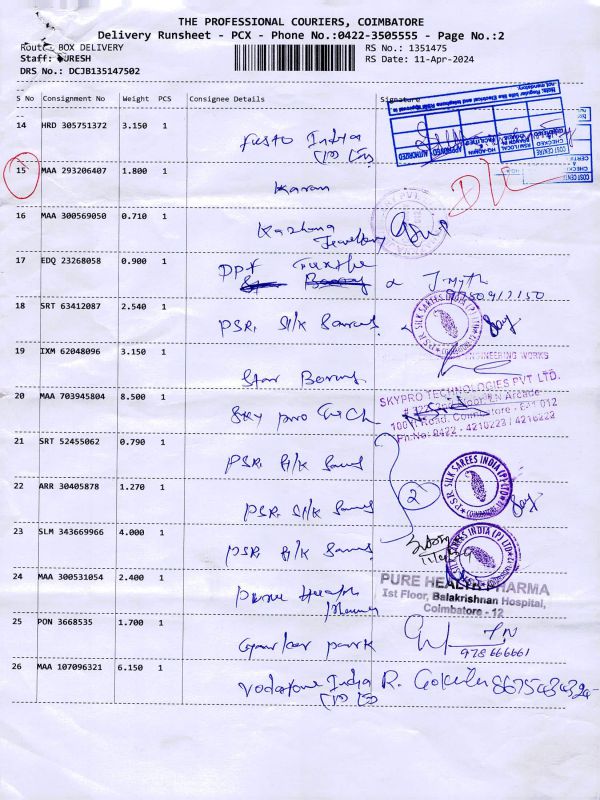 THE PROFESSIONAL COURIERS, COIMBATORE
Delivery Runsheet - PCX - Phone No.:0422-3505555 - Page No.:2
Route: BOX DELIVERY
RS No.: 1351475
Staff: SURESH
RS Date: 11-Apr-2024
DRS No.: DCJB135147502
S No Consignment No Weight PCS Consignee Details Signature
14 HRD 305751372 3.150 1 Festo India
(P) Ltd
15 MAA 293206407 1.800 1 Karan
16 MAA 300569050 0.710 1
Jewellery
17 EDQ 23268058 0.900 1 PPT
18 SRT 63412087 2.540 1 PSR. Silk Sarees
19 IXM 62048096 3.150 1 Star Boring
ENGINEERING WORKS
20 MAA 703945804 8.500 1 Sky pro Tech
SKYPRO TECHNOLOGIES PVT LTD.
Floor, LN Arcade
100 ft Road, Coimbatore - 641 012
Ph.No: 0422 - 4216223 / 4216222
21 SRT 52455062 0.790 1 PSR. Silk Sarees
22 ARR 30405878 1.270 1 PSR. Silk Sarees
2
PSR SILK SAREES INDIA (P) LTD
COIMBATORE
23 SLM 343669966 4.000 1 PSR Silk Sarees
24 MAA 300531054 2.400 1 Pure Health
Pharmacy
PURE HEALTH PHARMA
Ist Floor, Balakrishnan Hospital,
Coimbatore - 12
25 PON 3668535 1.700 1 park
978666661
26 MAA 107096321 6.150 1 Vodafone India R. Gokila
(P) Ltd